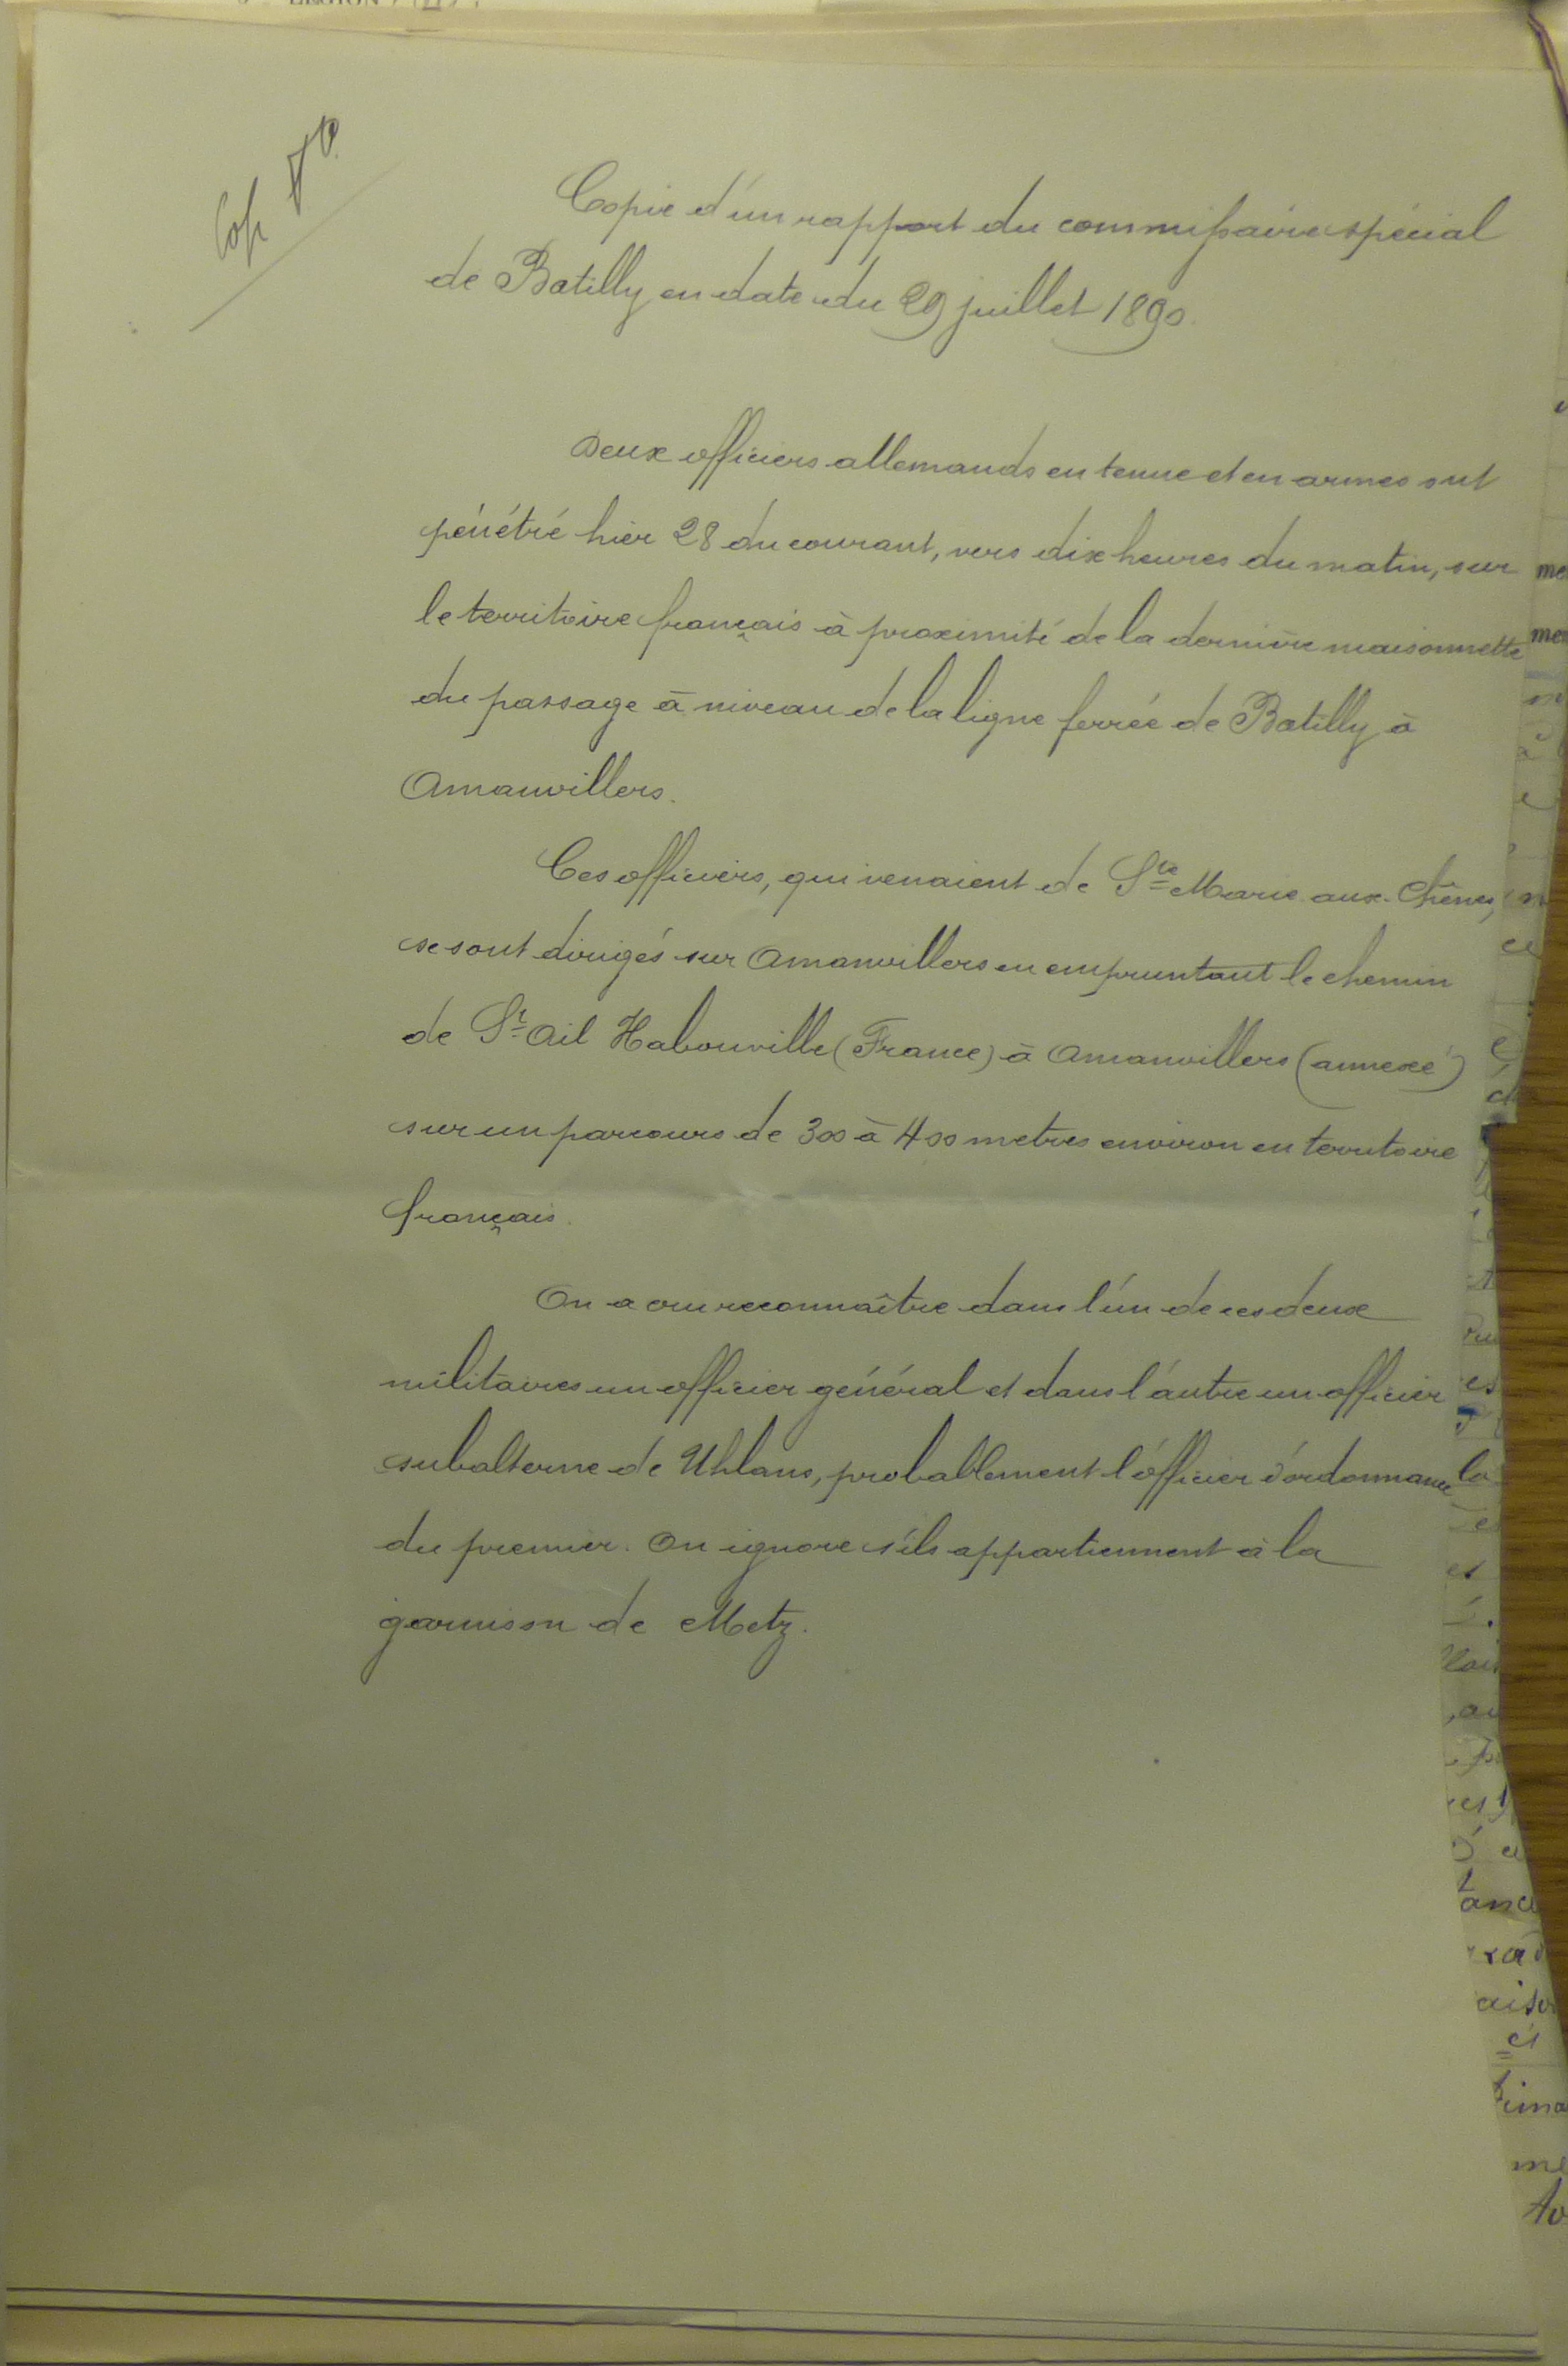 Copie d'un rapport du commissaire spécial
de Batilly en date du 29 juillet 1890.
Deux officiers allemands en tenue et en armes ont
pénétré hier 28 du courant, vers dix heures du matin, sur
le territoire français à proximité de la dernière maisonnette
du passage à niveau de la ligne ferrée de Batilly à
Amanvillers.
Ces officiers, qui venaient de Ste Marie aux Chênes,
se sont dirigés sur Amanvillers en empruntant le chemin
de St Ail Habouville (France) à Amanvillers (annexé)
sur un parcours de 300 à 400 metres environ en territoire
français.
On a cru reconnaître dans l'un de ces deux
militaires un officier général et dans l'autre un officier
subalterne de Uhlans, probablement l'officier d'ordonnance
du premier. On ignore s'ils appartiennent à la
garnison de Metz.